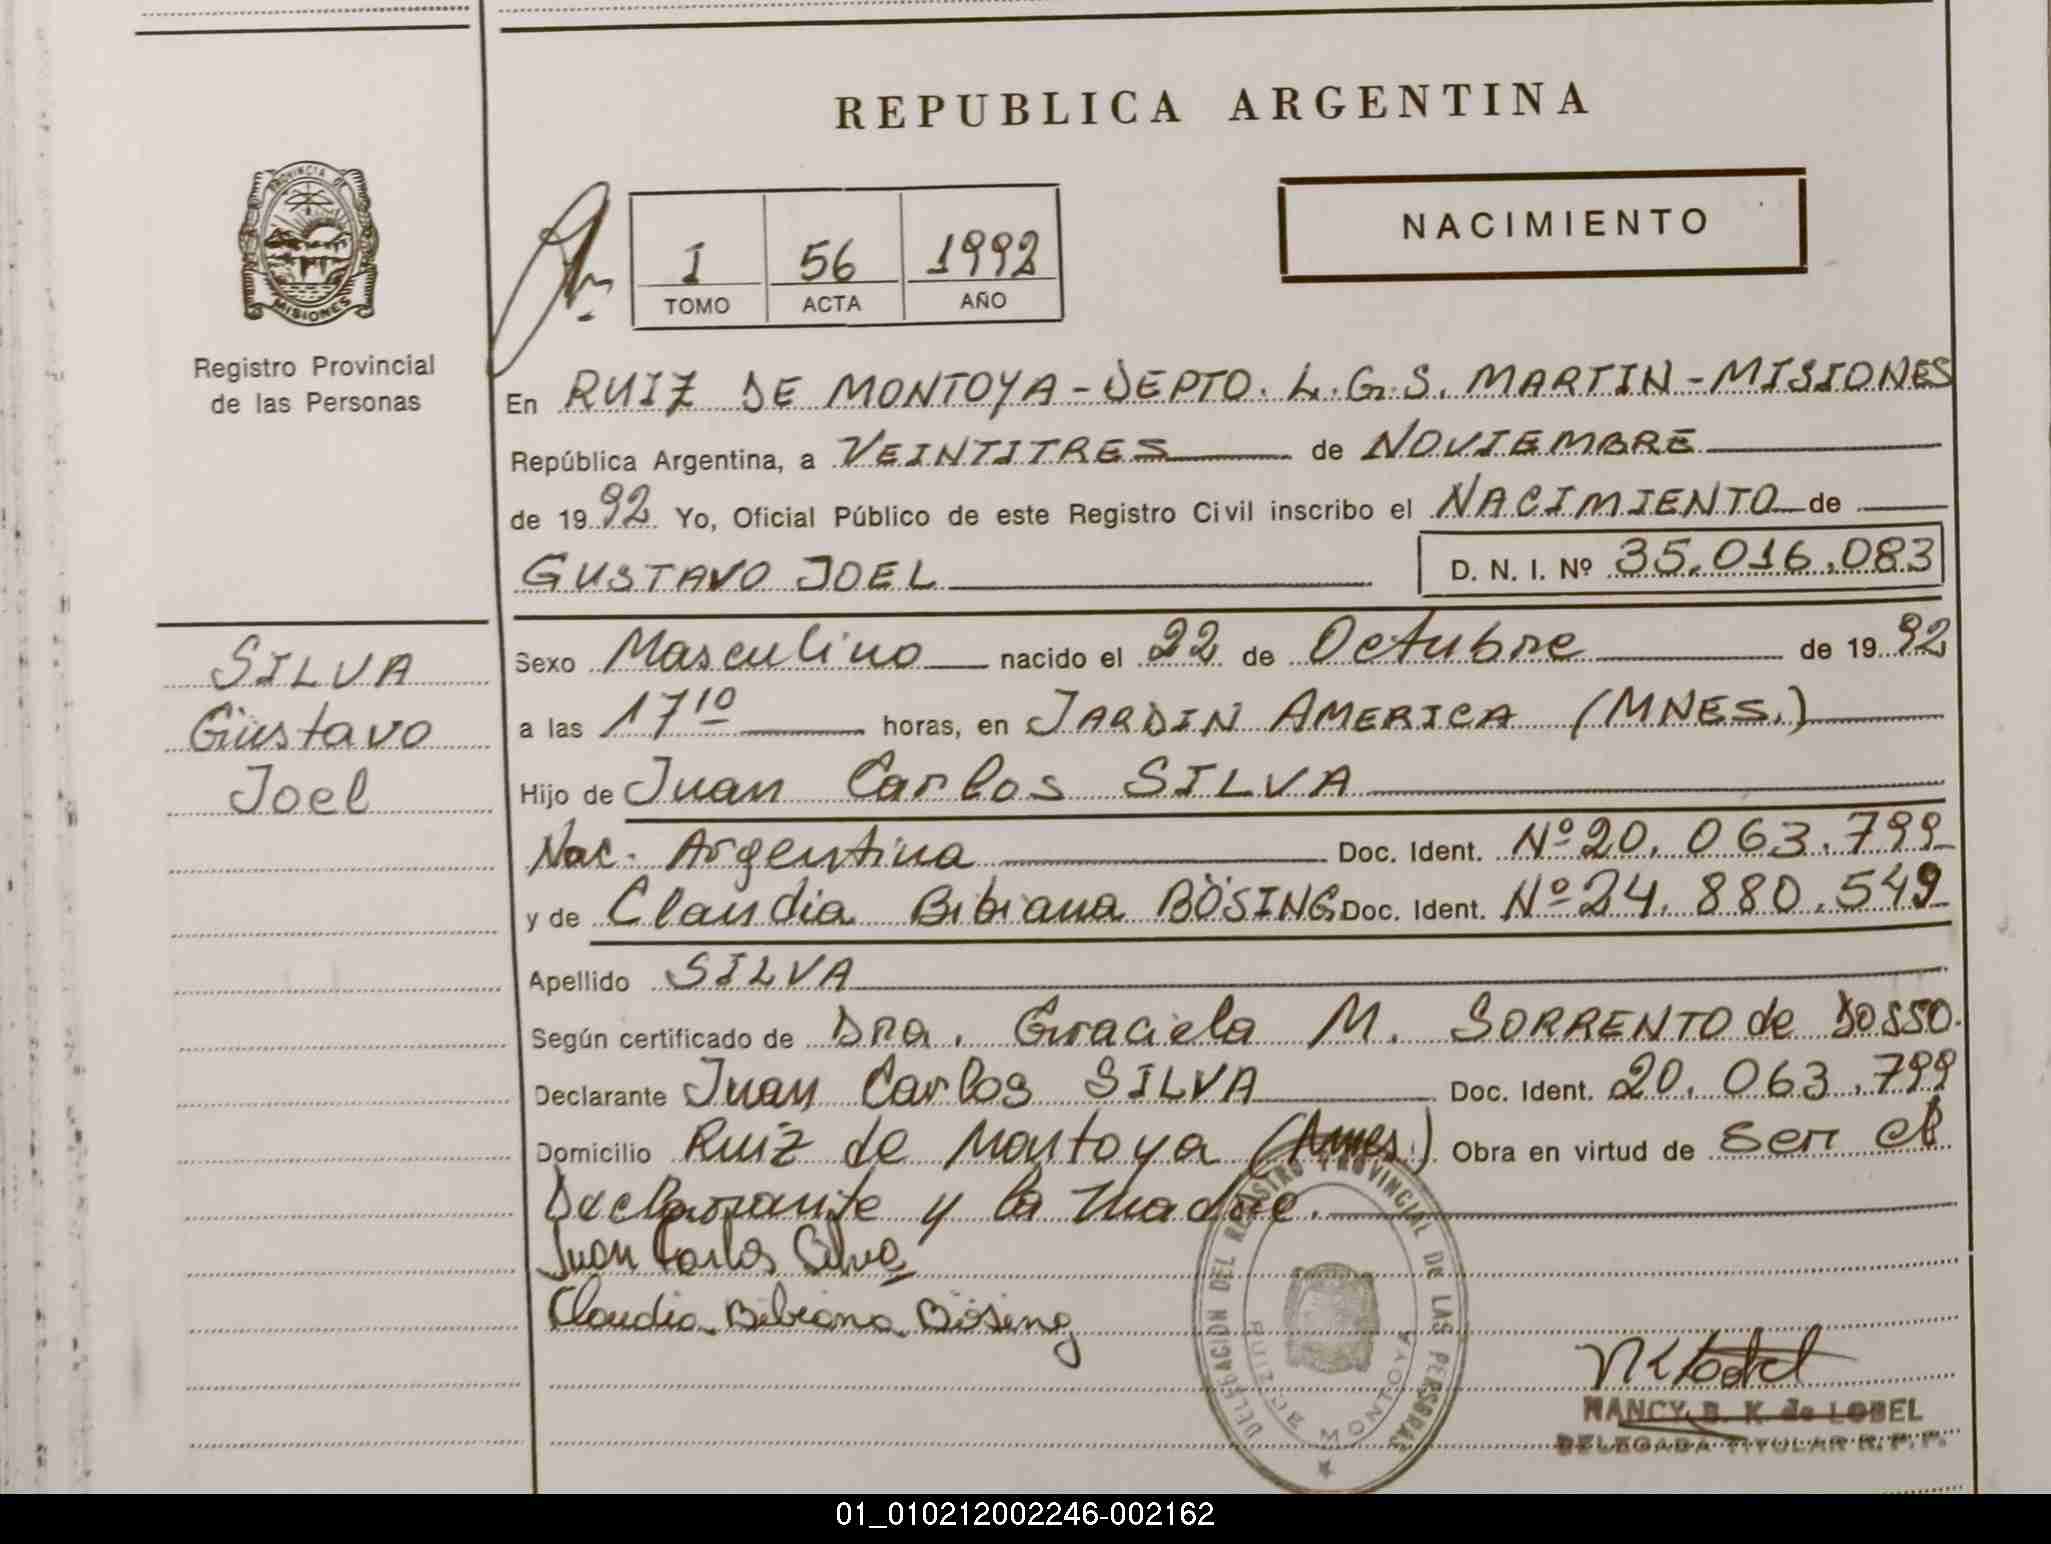 REPUBLICA ARGENTINA
NACIMIENTO
PROVINCIA DE
MISIONES
Registro Provincial
de las Personas
I 56 1992
TOMO ACTA AÑO
En RUIZ DE MONTOYA - DEPTO. L.G.S. MARTIN - MISIONES
República Argentina, a VEINTITRES de NOVIEMBRE
de 1992 Yo, Oficial Público de este Registro Civil inscribo el NACIMIENTO de
GUSTAVO JOEL D. N. I. Nº 35.016.083
SILVA
Gustavo
Joel
Sexo Masculino nacido el 22 de Octubre de 1992
a las 17 10 horas, en JARDIN AMERICA (MNES.)
Hijo de Juan Carlos SILVA
Nac. Argentina Doc. Ident. Nº 20.063.799
y de Claudia Bibiana BÖSING Doc. Ident. Nº 24.880.549
Apellido SILVA
Según certificado de Dra. Graciela M. SORRENTO de DOSSO.
Declarante Juan Carlos SILVA Doc. Ident. 20.063.799
Domicilio Ruiz de Montoya (Mnes.) Obra en virtud de ser el
Declarante y la madre.
Juan Carlos Silva
Claudia Bibiana Bösing
DELEGACION DEL REGISTRO PROVINCIAL DE LAS PERSONAS
RUIZ DE MONTOYA
NANCY B. K. de LOBEL
DELEGADA TITULAR R. P. P.
01_010212002246-002162